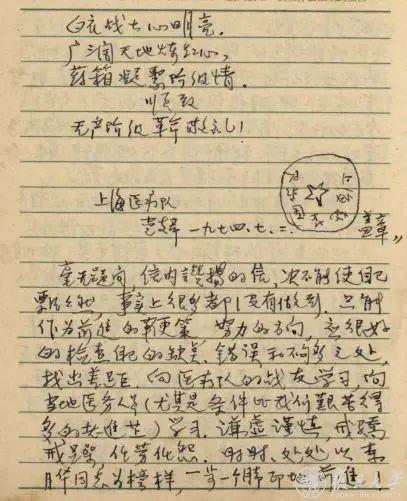 白衣战士心明亮.
广阔天地炼红心,
药箱凝聚阶级情.
顺致
无产阶级革命敬礼!
上海医疗队
一九七四.七.二. 盖章”
毫无疑问 信内赞扬的信,决不能使自己
飘飘然,事实上很多都没有做到.只能
作为前进的鞭策 努力的方向,要很好
的检查自己的缺点、错误和不够之处,
找出差距.向医疗队的战友学习,向
当地医务人员(尤其是条件比我们艰苦得
多的赤脚医生)学习.谦虚谨慎,戒骄
戒躁,任劳任怨.时时、处处以
同志为榜样,一步一个脚印地前进!